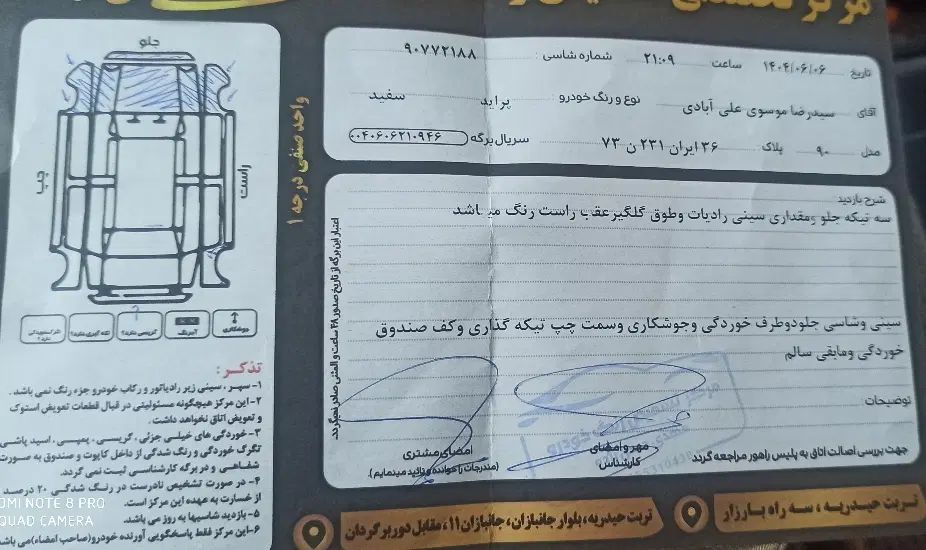 تاریخ ۱۴۰۴/۰۶/۰۶ ساعت ۲۱:۰۹ شماره شاسی ۹۰۷۷۲۱۸۸
آقای سیدرضا موسوی علی آبادی نوع و رنگ خودرو پراید سفید
مدل ۹۰ پلاک ۳۶ ایران ۲۳۱ ن ۷۳ سریال برگه ۰۰۴۰۶۰۶۲۱۰۹۴۶
شرح بازدید
سه تیکه جلو ومقداری سینی رادیات وطوق گلگیرعقب راست رنگ میباشد
سینی وشاسی جلودوطرف خوردگی وجوشکاری وسمت چپ تیکه گذاری وکف صندوق
خوردگی ومابقی سالم
توضیحات
جهت بررسی اصالت اتاق به پلیس راهور مراجعه گردد
مهر و امضای
کارشناس
امضای مشتری
(مندرجات را خوانده و تائید مینمایم)
اعتبار این برگه از تاریخ صدور ۴۸ ساعت و المثنی صادر نمیگردد.
واحد صنفی درجه ۱
جلو
راست
چپ
جوشکاری
آبرنگ
گریسی دارد؟
لکه گیری دارد؟
تذکر:
۱- سپر، سینی زیر رادیاتور و رکاب خودرو جزء رنگ نمی باشد.
۲- این مرکز هیچگونه مسئولیتی در قبال قطعات تعویض استوک
و تعویض اتاق نخواهد داشت.
۳- خوردگی های خیلی جزئی، گریسی، پمپی، اسید پاشی
تگرگ خوردگی و رنگ شدگی از داخل کاپوت و صندوق به صورت
شفاهی و در برگه کارشناسی ثبت نمی گردد.
۴- در صورت تشخیص نادرست در رنگ شدگی ۲۰ درصد
از خسارت به عهده این مرکز است.
۵- بازدید شاسیها به روز می باشد.
۶- این مرکز فقط پاسخگویی آورنده خودرو(صاحب امضاء)می باشد
تربت حیدریه، سه راه بارزار
تربت حیدریه، بلوار جانبازان، جانبازان ۱۱، مقابل دور برگردان
OMI NOTE 8 PRO
QUAD CAMERA